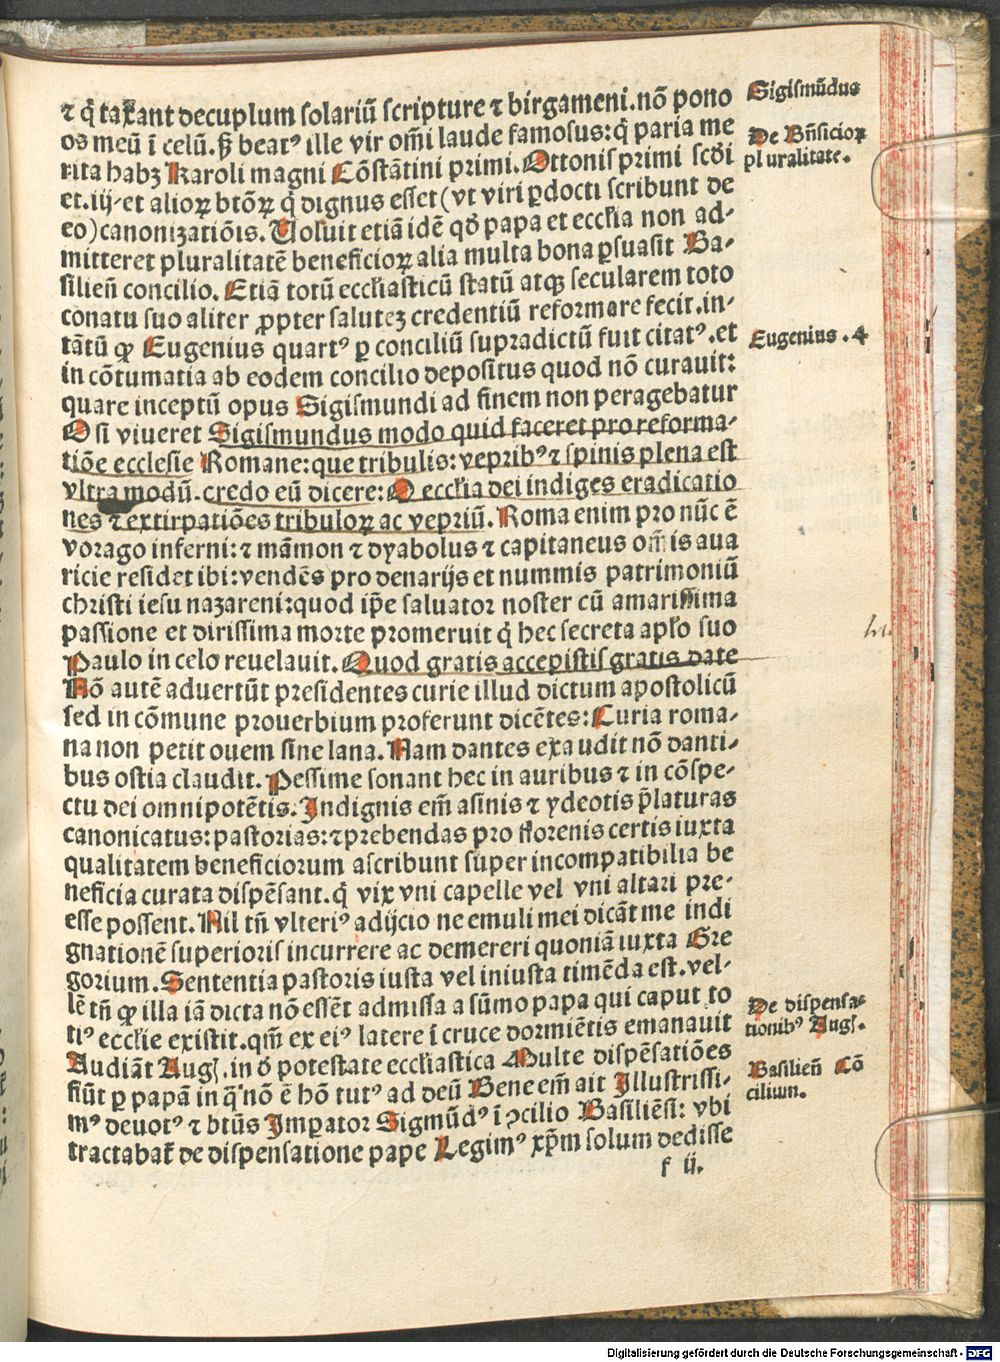 ⁊ q̄ taxant decuplum solariū scripture ⁊ birgameni.nō pono
os meū ī celū.ꝓ beatꝰ ille vir om̄i laude famosus:q̄ paria me
rita habꝫ Karoli magni Cōstātini primi.Ottonis primi scd̄i
et.iij·et alioꝝ btōꝝ q̄ dignus esset(vt viri ꝑdocti scribunt de
eo)canonizatiōis.Uoluit etiā idē qd̄ papa et eccl̄ia non ad-
mitteret pluralitatē beneficioꝝ alia multa bona ꝑsuasit Ba-
silien̄ concilio.Etiā totū eccl̄iasticū statū atqꝫ secularem toto
conatu suo aliter ꝓpter salutez credentiū reformare fecit.in-
tātū ꝙ Eugenius quartꝰ ꝑ conciliū supradictū fuit citatꝰ.et
in cōtumatia ab eodem concilio depositus quod nō curauit:
quare inceptū opus Sigismundi ad finem non peragebatur
O si viueret Sigismundus modo quid faceret pro reforma-
tiōe ecclesie Romane:que tribulis:vepribꝰ ⁊ spinis plena est
vltra modū.credo eū dicere:O eccl̄ia dei indiges eradicatio
nes ⁊ extirpatiōes tribuloꝝ ac vepriū.Roma enim pro nūc ē
vorago inferni:⁊ māmon ⁊ dyabolus ⁊ capitaneus om̄is aua
ricie residet ibi:vendēs pro denarijs et nummis patrimoniū
christi iesu nazareni:quod ip̄e saluator noster cū amarissima
passione et dirissima morte promeruit q̄ hec secreta apl̄o suo
Paulo in celo reuelauit.Quod gratis accepistis gratis date
Nō autē aduertūt presidentes curie illud dictum apostolicū
sed in cōmune prouerbium proferunt dicētes:Curia roma-
na non petit ouem sine lana.Nam dantes exaudit nō danti-
bus ostia claudit.Pessime sonant hec in auribus ⁊ in cōspe-
ctu dei omnipotētis.Indignis em̄ asinis ⁊ ydeotis p̄laturas
canonicatus:pastorias:⁊prebendas pro florenis certis iuxta
qualitatem beneficiorum ascribunt super incompatibilia be
neficia curata dispēsant.q̄ vix vni capelle vel vni altari pre-
esse possent.Nil tn̄ vlteriꝰ adijcio ne emuli mei dicāt me indi
gnationē superioris incurrere ac demereri quoniā iuxta Gre
gorium.Sententia pastoris iusta vel iniusta timēda est.vel-
lē tn̄ ꝙ illa iā dicta nō essēt admissa a sūmo papa qui caput to
tiꝰ eccl̄ie existit.qm̄ ex eiꝰ latere ī cruce dormiētis emanauit
Audiāt Aug.in d̄ potestate eccl̄iastica Multe dispēsatiōes
fiūt ꝑ papā in q̄ nō ē hō tutꝰ ad deū Bene em̄ ait Illustrissi-
mꝰ deuotꝰ ⁊ btūs Imꝑator Sigmūdꝰ ī ꝯcilio Basiliēsi: vbi
tractabat̄ de dispensatione pape Legimꝰ xp̄m solum dedisse
f ij.
Sigismūdus
De Bn̄ficioꝝ
pluralitate.
Eugenius.4
De dispensa-
tionibꝰ Aug.
Basilien̄ Cō
cilium.
Digitalisierung gefördert durch die Deutsche Forschungsgemeinschaft - DFG